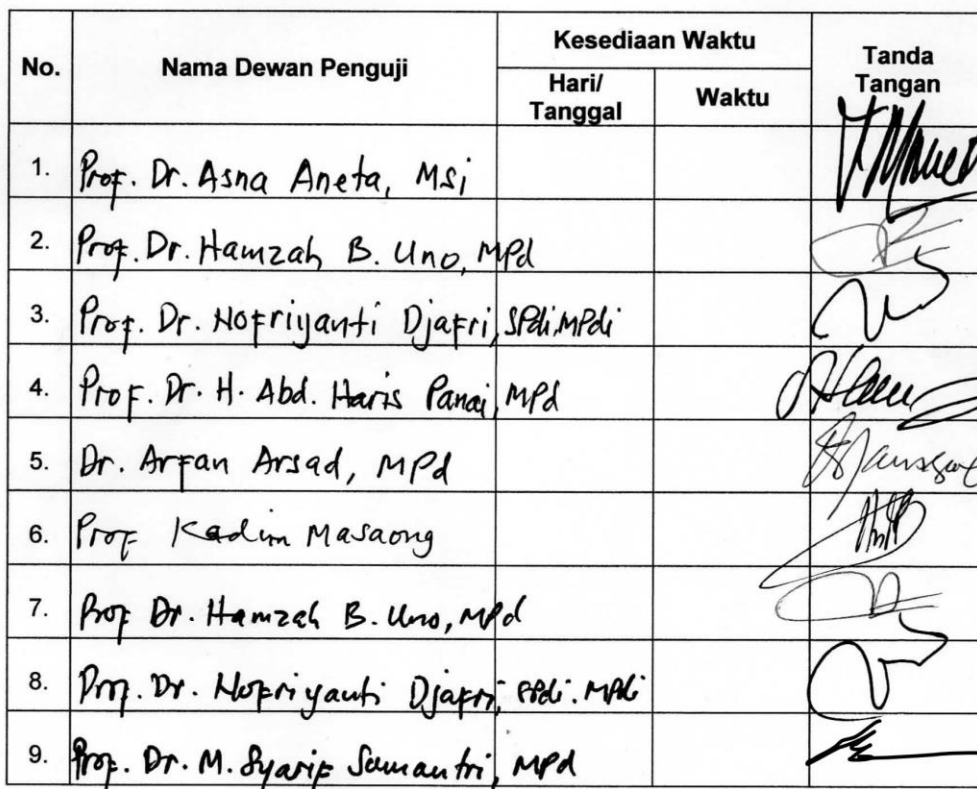 No. Nama Dewan Penguji Kesediaan Waktu Tanda Tangan
Hari/ Tanggal Waktu
1. Prof. Dr. Asna Aneta, Msi
2. Prof. Dr. Hamzah B. Uno, MPd
3. Prof. Dr. Nofriyanti Djafri, SPdi.MPdi
4. Prof. Dr. H. Abd. Haris Panai, MPd
5. Dr. Arfan Arsad, MPd
6. Prof Kadim Masaong
7. Prof Dr. Hamzah B. Uno, MPd
8. Prof. Dr. Nofriyanti Djafri, SPdi. MPdi
9. Prof. Dr. M. Syarif Sumantri, MPd